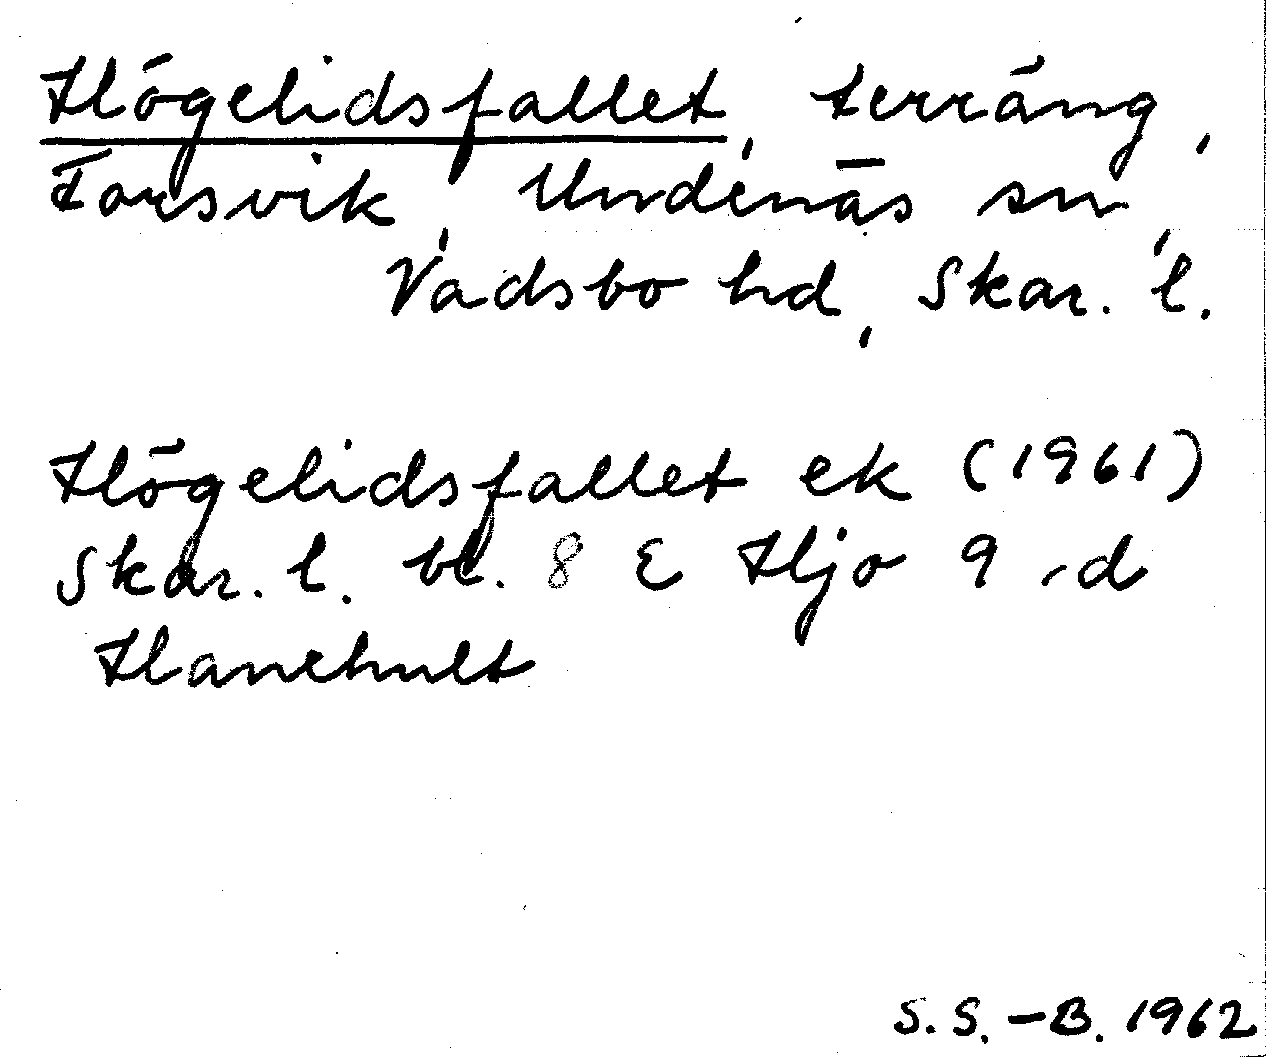 Högelidsfallet, terräng,
Forsvik, Undenäs sn,
Vadsbo hd, Skar. l.
Högelidsfallet ek (1961)
Skar. l. bl. 8 E Hjo 9 d
Hanehult
S.S.-B. 1962